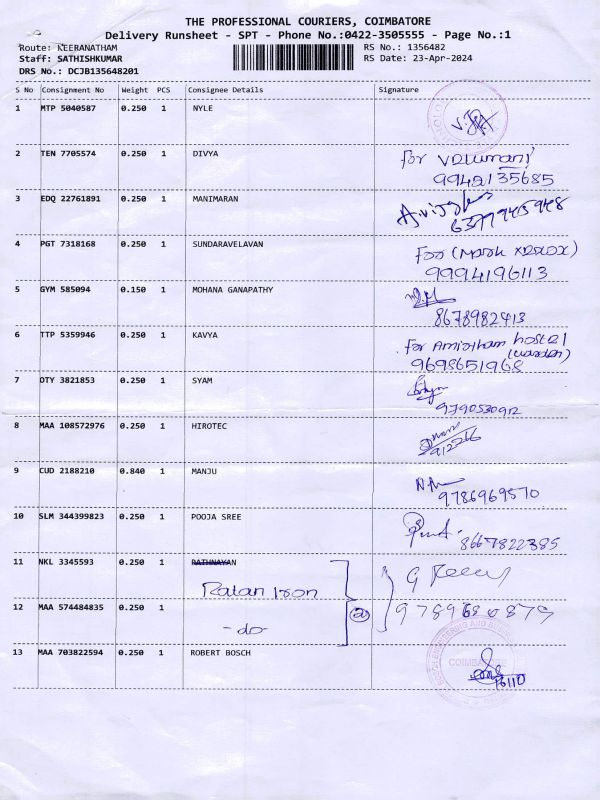 THE PROFESSIONAL COURIERS, COIMBATORE
Delivery Runsheet - SPT - Phone No.:0422-3505555 - Page No.:1
Route: KEERANATHAM RS No.: 1356482
Staff: SATHISHKUMAR RS Date: 23-Apr-2024
DRS No.: DCJB135648201
S No Consignment No Weight PCS Consignee Details Signature
1 MTP 5040587 0.250 1 NYLE
2 TEN 7705574 0.250 1 DIVYA For
9942135685
3 EDQ 22761891 0.250 1 MANIMARAN
6377945948
4 PGT 7318168 0.250 1 SUNDARAVELAVAN For (Mark
9994196113
5 GYM 585094 0.150 1 MOHANA GANAPATHY
8678982413
6 TTP 5359946 0.250 1 KAVYA For Amirtham hostel
(warden)
9698651968
7 OTY 3821853 0.250 1 SYAM
9790530912
8 MAA 108572976 0.250 1 HIROTEC
9 CUD 2188210 0.840 1 MANJU
9786969570
10 SLM 344399823 0.250 1 POOJA SREE
8667822385
11 NKL 3345593 0.250 1 RATHNAYAN
Ratan Iron
12 MAA 574484835 0.250 1 -do-
13 MAA 703822594 0.250 1 ROBERT BOSCH
COIMBATORE
16110